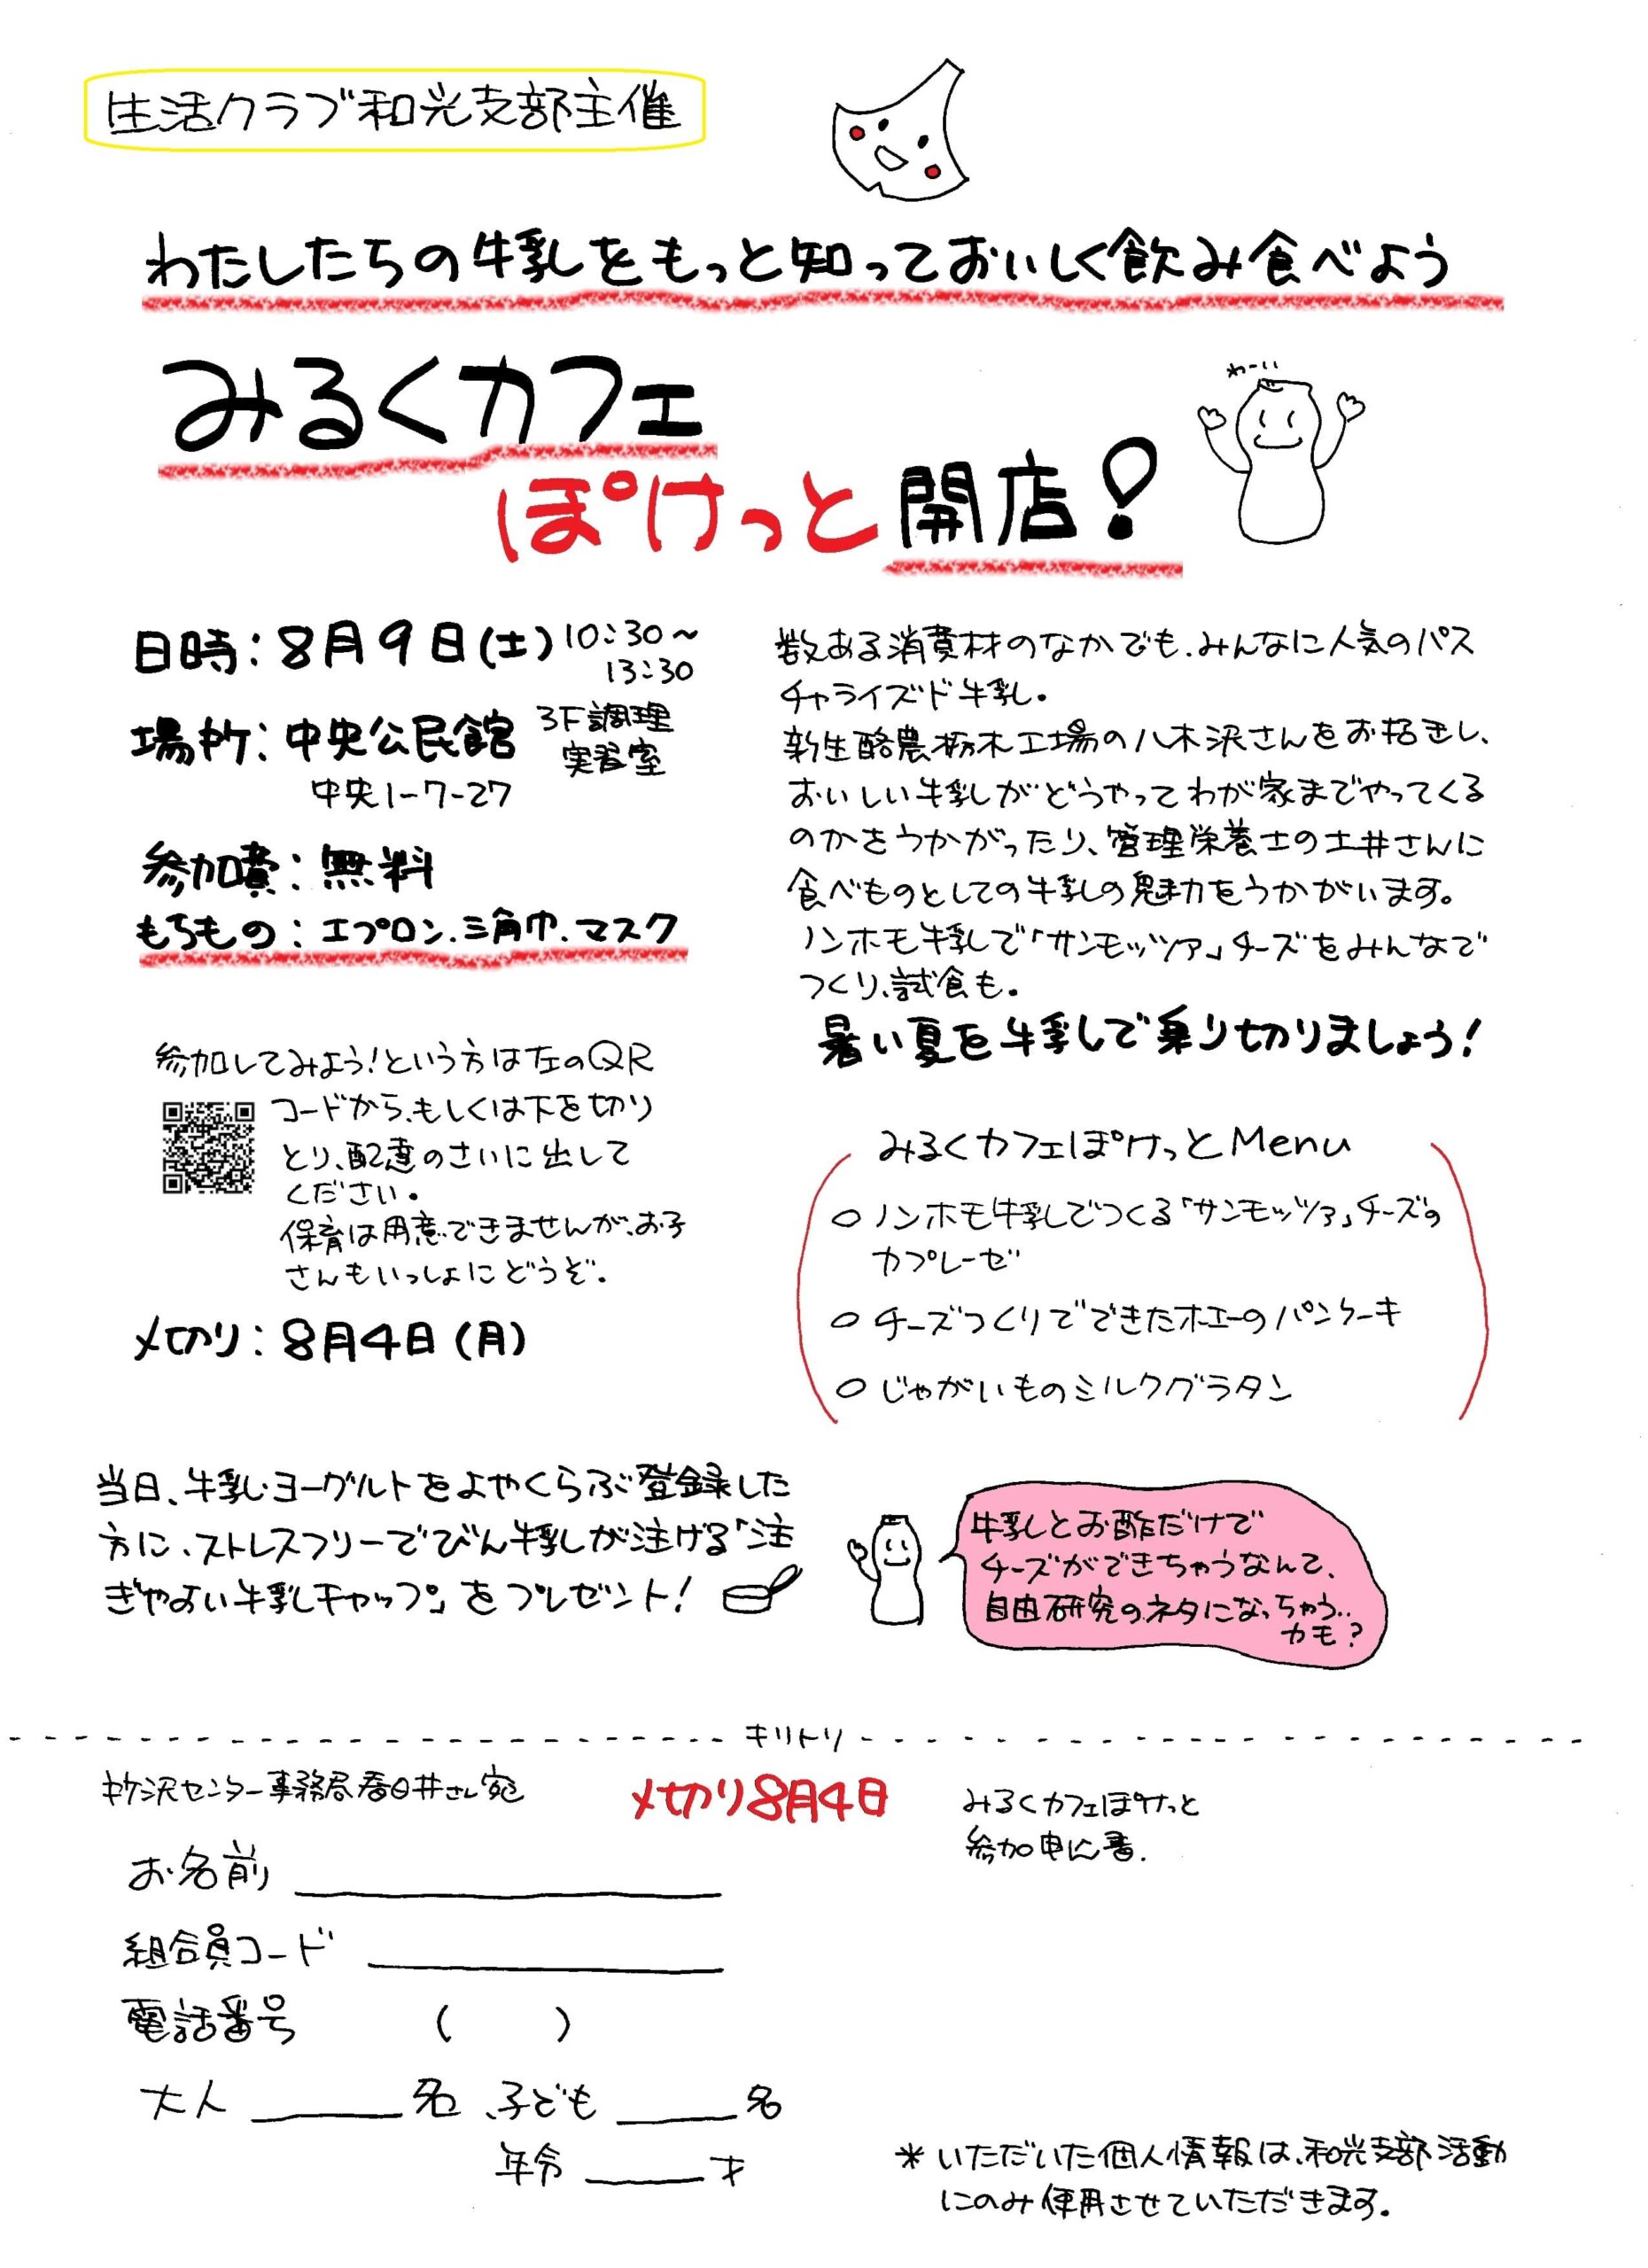 生活クラブ和光支部主催
わたしたちの牛乳をもっと知っておいしく飲み食べよう
みるくカフェ
ぽけっと開店!
わーい
日時:8月9日(土)10:30~
13:30
場所:中央公民館 3F調理
実習室
中央1-7-27
参加費:無料
もちもの:エプロン.三角巾.マスク
参加してみよう!という方は左のQR
コードから、もしくは下を切り
とり、配達のさいに出して
ください。
保育は用意できませんが、お子
さんもいっしょにどうぞ。
〆切り:8月4日(月)
数ある消費材のなかでも、みんなに人気のパス
チャライズド牛乳。
新生酪農栃木工場の八木沢さんをお招きし、
おいしい牛乳がどうやってわが家までやってくる
のかをうかがったり、管理栄養士の土井さんに
食べものとしての牛乳の魅力をうかがいます。
ノンホモ牛乳で「サンモッツァ」チーズをみんなで
つくり、試食も。
暑い夏を牛乳で乗り切りましょう!
みるくカフェぽけっとMenu
○ノンホモ牛乳でつくる「サンモッツァ」チーズの
カプレーゼ
○チーズつくりでできたホエーのパンケーキ
○じゃがいものミルクグラタン
当日、牛乳・ヨーグルトをよやくらぶ登録した
方に、ストレスフリーでびん牛乳が注げる「注
ぎやすい牛乳キャップ」をプレゼント!
牛乳とお酢だけで
チーズができちゃうなんて、
自由研究のネタになっちゃう..
カモ?
キリトリ
所沢センター事務局春日井さん宛
〆切り8月4日
みるくカフェぽけっと
参加申込書.
お名前
組合員コード
電話番号 ( )
大人 名、子ども 名
年令 才
*いただいた個人情報は、和光支部活動
にのみ使用させていただきます。